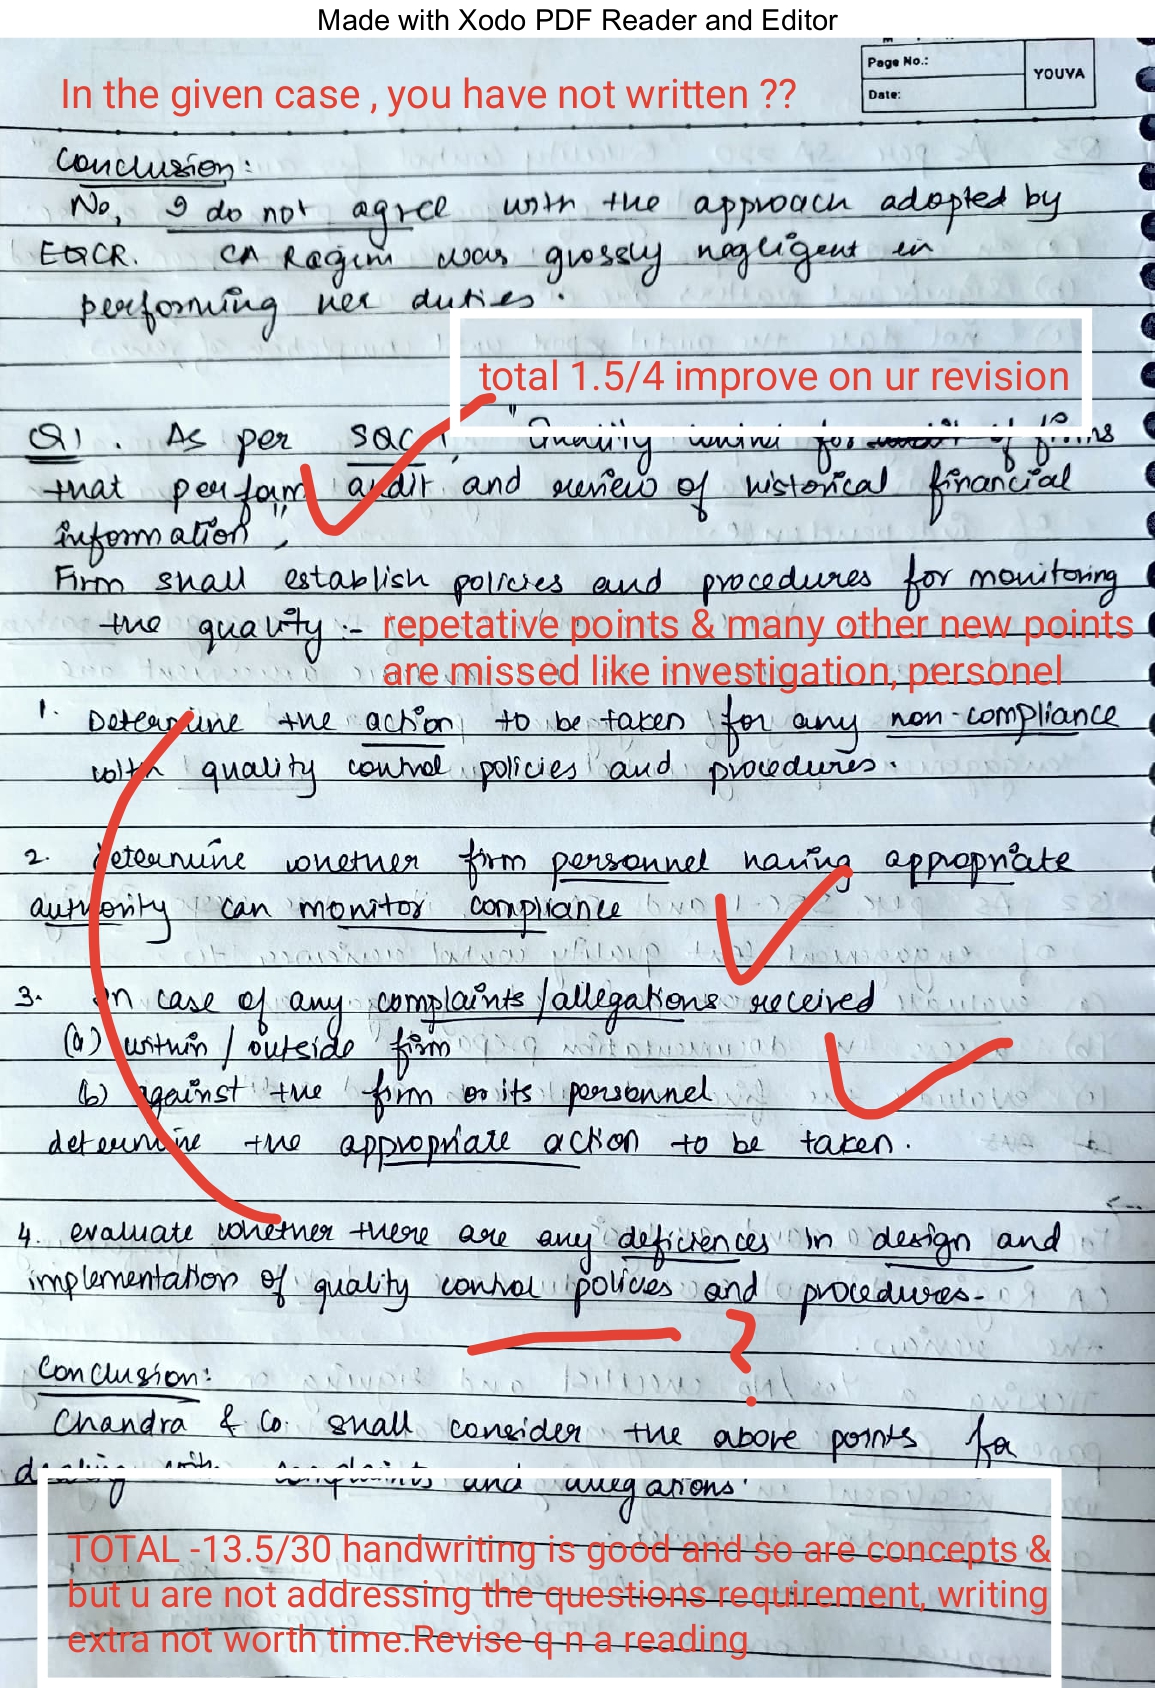 Made with Xodo PDF Reader and Editor
Page No.:
Date:
YOUVA
In the given case , you have not written ??
Conclusion:
No, I do not agree with the approach adopted by
EQCR. CA Ragini was grossly negligent in
performing her duties.
total 1.5/4 improve on ur revision
Q1. As per SQC 1, "Quality control for of firms
that perform audit and review of historical financial
information",
Firm shall establish policies and procedures for monitoring
the quality :-
repetative points & many other new points
are missed like investigation, personel
1. Determine the action to be taken for any non-compliance
with quality control policies and procedures.
2. determine whether firm personnel having appropriate
authority can monitor compliance
3. In case of any complaints/allegations received
(a) within / outside firm
(b) against the firm or its personnel
determine the appropriate action to be taken.
4. evaluate whether there are any deficiences in design and
implementation of quality control policies and procedures.
?
Conclusion:
Chandra & Co. shall consider the above points for
dealing with complaints and allegations.
TOTAL -13.5/30 handwriting is good and so are concepts &
but u are not addressing the questions requirement, writing
extra not worth time.Revise q n a reading